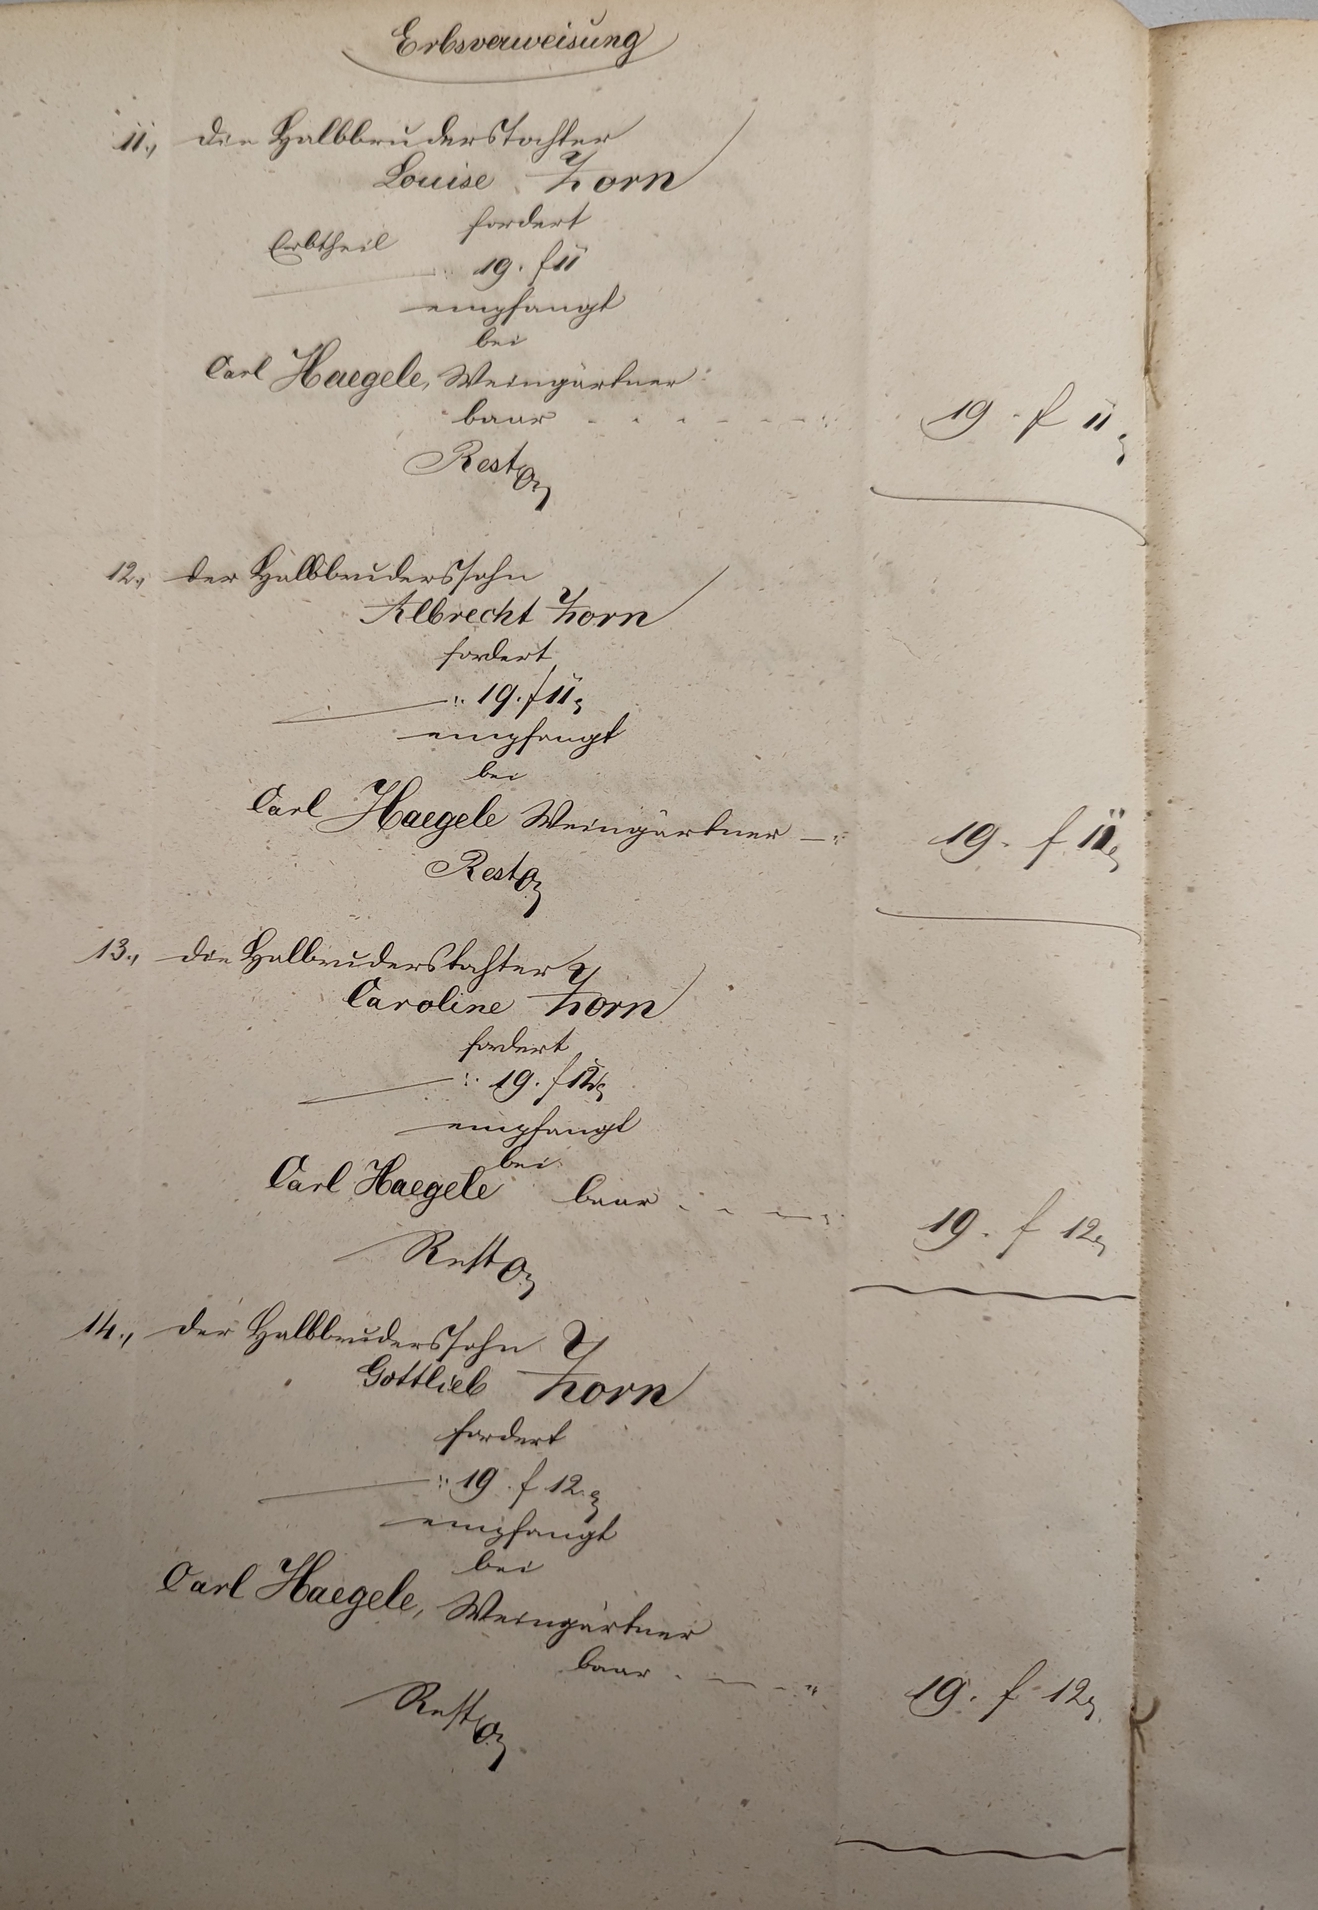 Erbsverweisung
11., die Halbbruderstochter
Louise Zorn
fordert
Erbtheil
19. f 11
empfangt
bei
Carl Haegele, Weingärtner
baar 19. f 11
Rest 0.
12., der Halbbruderssohn
Albrecht Zorn
fordert
19. f 11
empfangt
bei
Carl Haegele Weingärtner 19. f 11
Rest 0.
13., die Halbruderstochter
Caroline Zorn
fordert
19. f 12
empfangt
bei
Carl Haegele baar 19. f 12
Rest 0.
14., der Halbbruderssohn
Gottlieb Zorn
fordert
19. f 12
empfangt
bei
Carl Haegele, Weingärtner
baar 19. f 12
Rest 0.